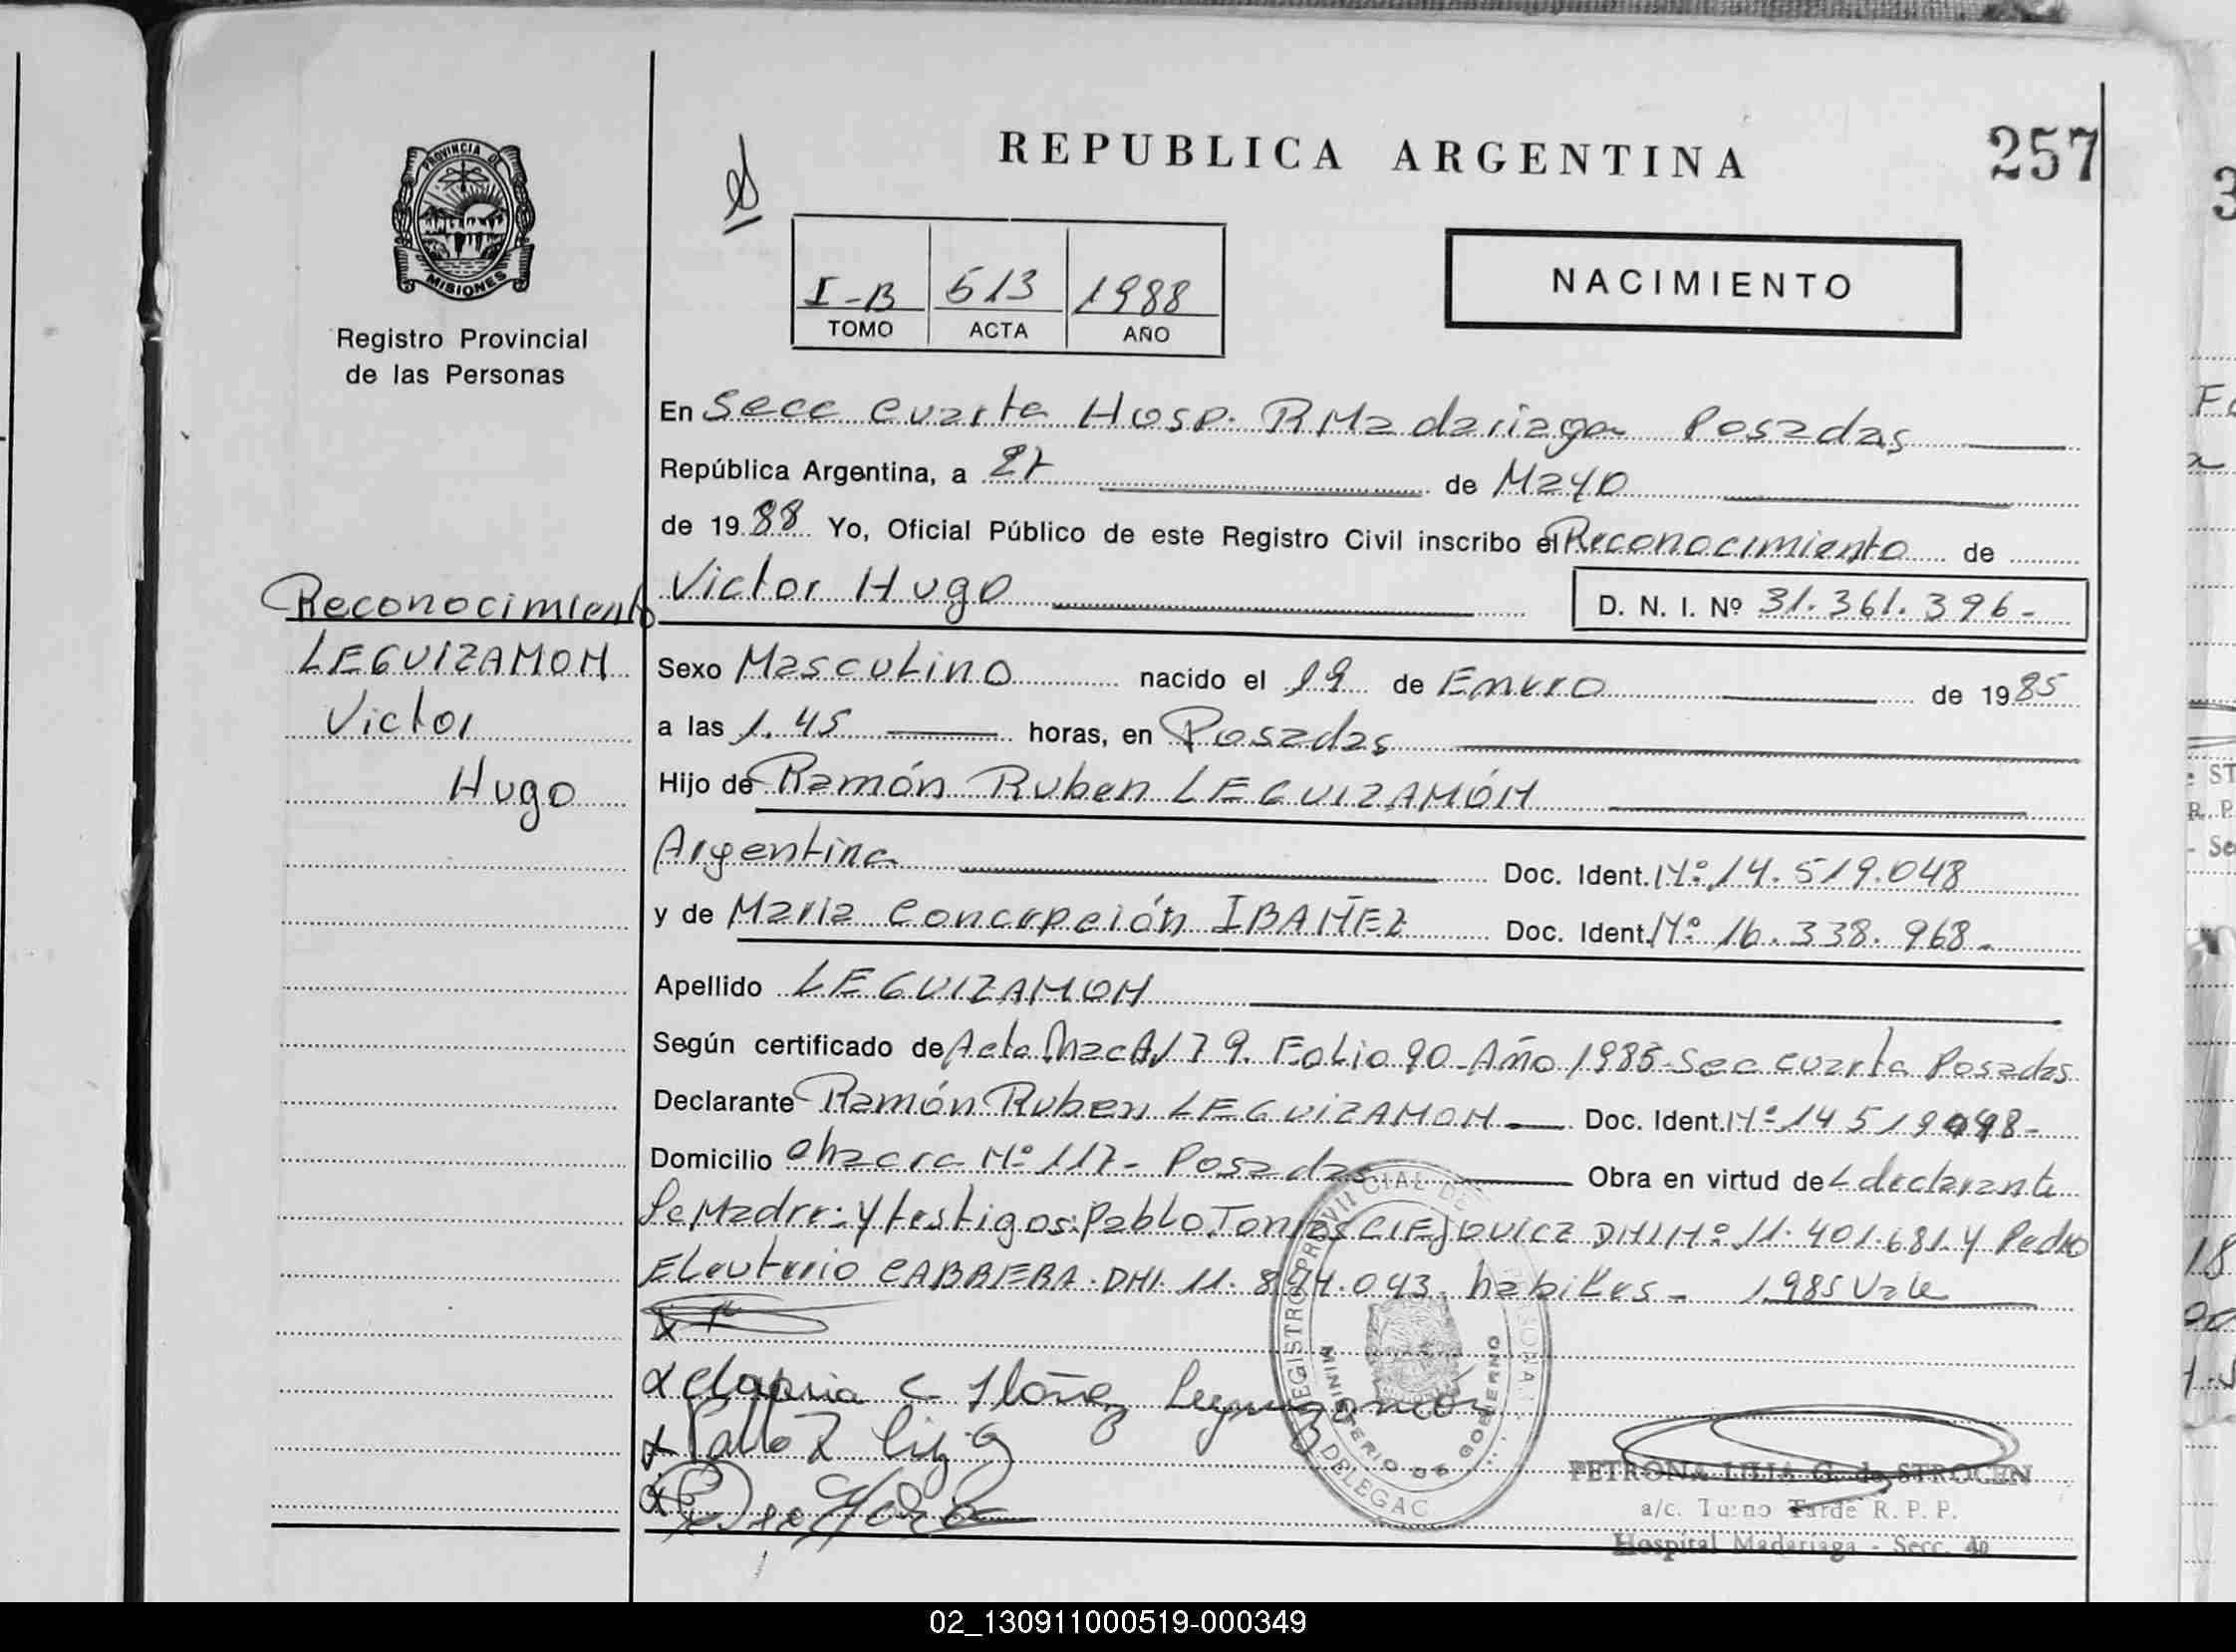 REPUBLICA ARGENTINA
257
PROVINCIA DE
MISIONES
Registro Provincial
de las Personas
I-B 513 1988
TOMO ACTA AÑO
NACIMIENTO
En Secc cuarta Hosp. R Madariaga Posadas
República Argentina, a 27 de Mayo
de 1988 Yo, Oficial Público de este Registro Civil inscribo el Reconocimiento de
Victor Hugo
D. N. I. Nº 31.361.396-
Reconocimiento
LEGUIZAMON
Victor
Hugo
Sexo Masculino nacido el 19 de Enero de 1985
a las 1.45 horas, en Posadas
Hijo de Ramón Ruben LEGUIZAMÓN
Argentina Doc. Ident. Nº 14.519.048
y de Maria Concepción IBAÑEZ Doc. Ident. Nº 16.338.968-
Apellido LEGUIZAMON
Según certificado de Acta Nac 179. Folio 90-Año 1985-Sec cuarta Posadas
Declarante Ramón Ruben LEGUIZAMON Doc. Ident. Nº 14519048-
Domicilio Chacra Nº 117- Posadas Obra en virtud de L declarante
La Madre: y testigos: Pablo Tomas CIEJOVICZ DNI Nº 11.401.681 y Pedro
Eleuterio CABRERA. DNI. 11.874.043. habiles- 1985 Vale
REGISTRO PROVINCIAL DE
MINISTERIO DE GOBIERNO
DELEGAC
PETRONA LILIA G. de STROCEN
a/c. Turno Tarde R. P. P.
Hospital Madariaga - Secc. 4a
02_130911000519-000349